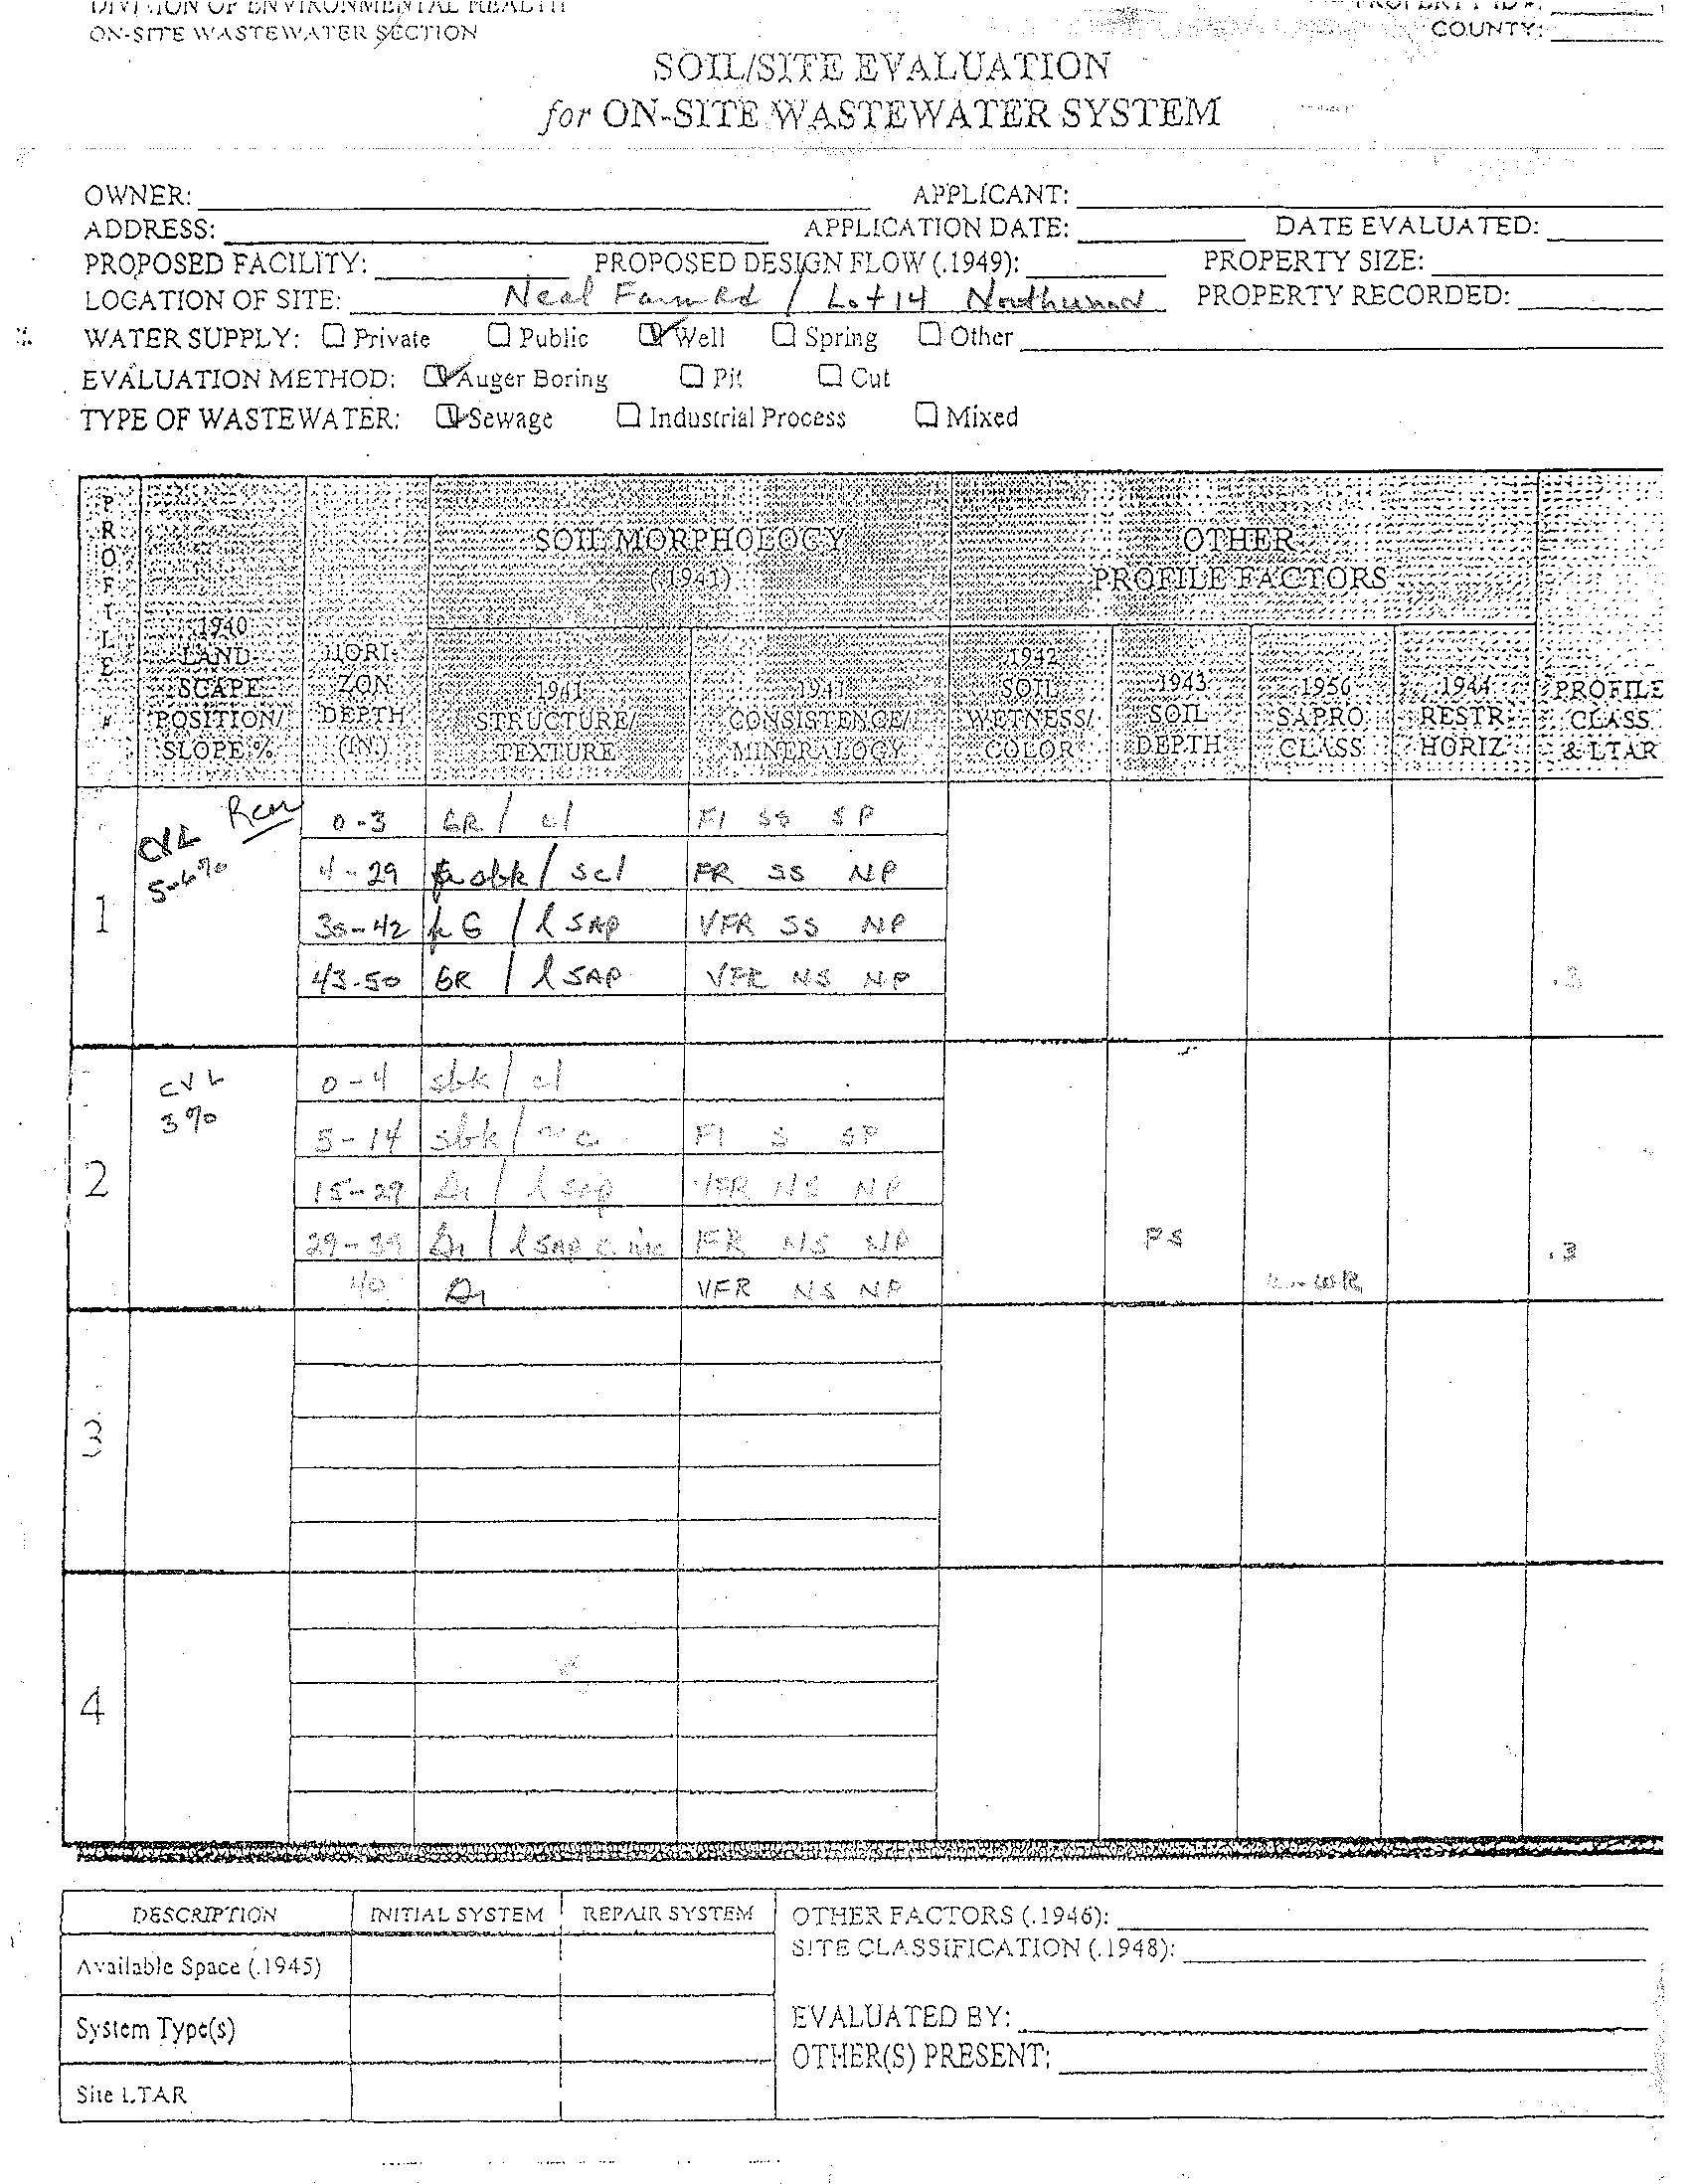 DIVISION OF ENVIRONMENTAL HEALTH
ON-SITE WASTEWATER SECTION
COUNTY:
SOIL/SITE EVALUATION
for ON-SITE WASTEWATER SYSTEM
OWNER: APPLICANT:
ADDRESS: APPLICATION DATE: DATE EVALUATED:
PROPOSED FACILITY: PROPOSED DESIGN FLOW (.1949): PROPERTY SIZE:
LOCATION OF SITE: Neal Farm Rd / Lot 14 Northwood PROPERTY RECORDED:
WATER SUPPLY: Private Public Well Spring Other
EVALUATION METHOD: Auger Boring Pit Cut
TYPE OF WASTEWATER: Sewage Industrial Process Mixed
PROFILE #
.1940 LAND-SCAPE POSITION/ SLOPE %
HORI-ZON DEPTH (IN.)
SOIL MORPHOLOGY (.1941)
.1941 STRUCTURE/ TEXTURE
.1941 CONSISTENCE/ MINERALOGY
OTHER PROFILE FACTORS
.1942 SOIL WETNESS/ COLOR
.1943 SOIL DEPTH
.1956 SAPRO CLASS
.1944 RESTR HORIZ
PROFILE CLASS & LTAR
1 CVL 5-6%
0-3 GR / cl FI SS SP
4-29 sbk / scl FR SS NP
30-42 / l SAP VFR SS NP
43-50 GR / l SAP VFR NS NP .3
2 CVL 3%
0-4 sbk / cl
5-14 sbk / c FI S SP
15-29 Gr / l sap VFR NS NP
29-39 Gr / l SAP FR NS NP PS .3
40 Gr VFR NS NP
3
4
DESCRIPTION INITIAL SYSTEM REPAIR SYSTEM
Available Space (.1945)
System Type(s)
Site LTAR
OTHER FACTORS (.1946):
SITE CLASSIFICATION (.1948):
EVALUATED BY:
OTHER(S) PRESENT: